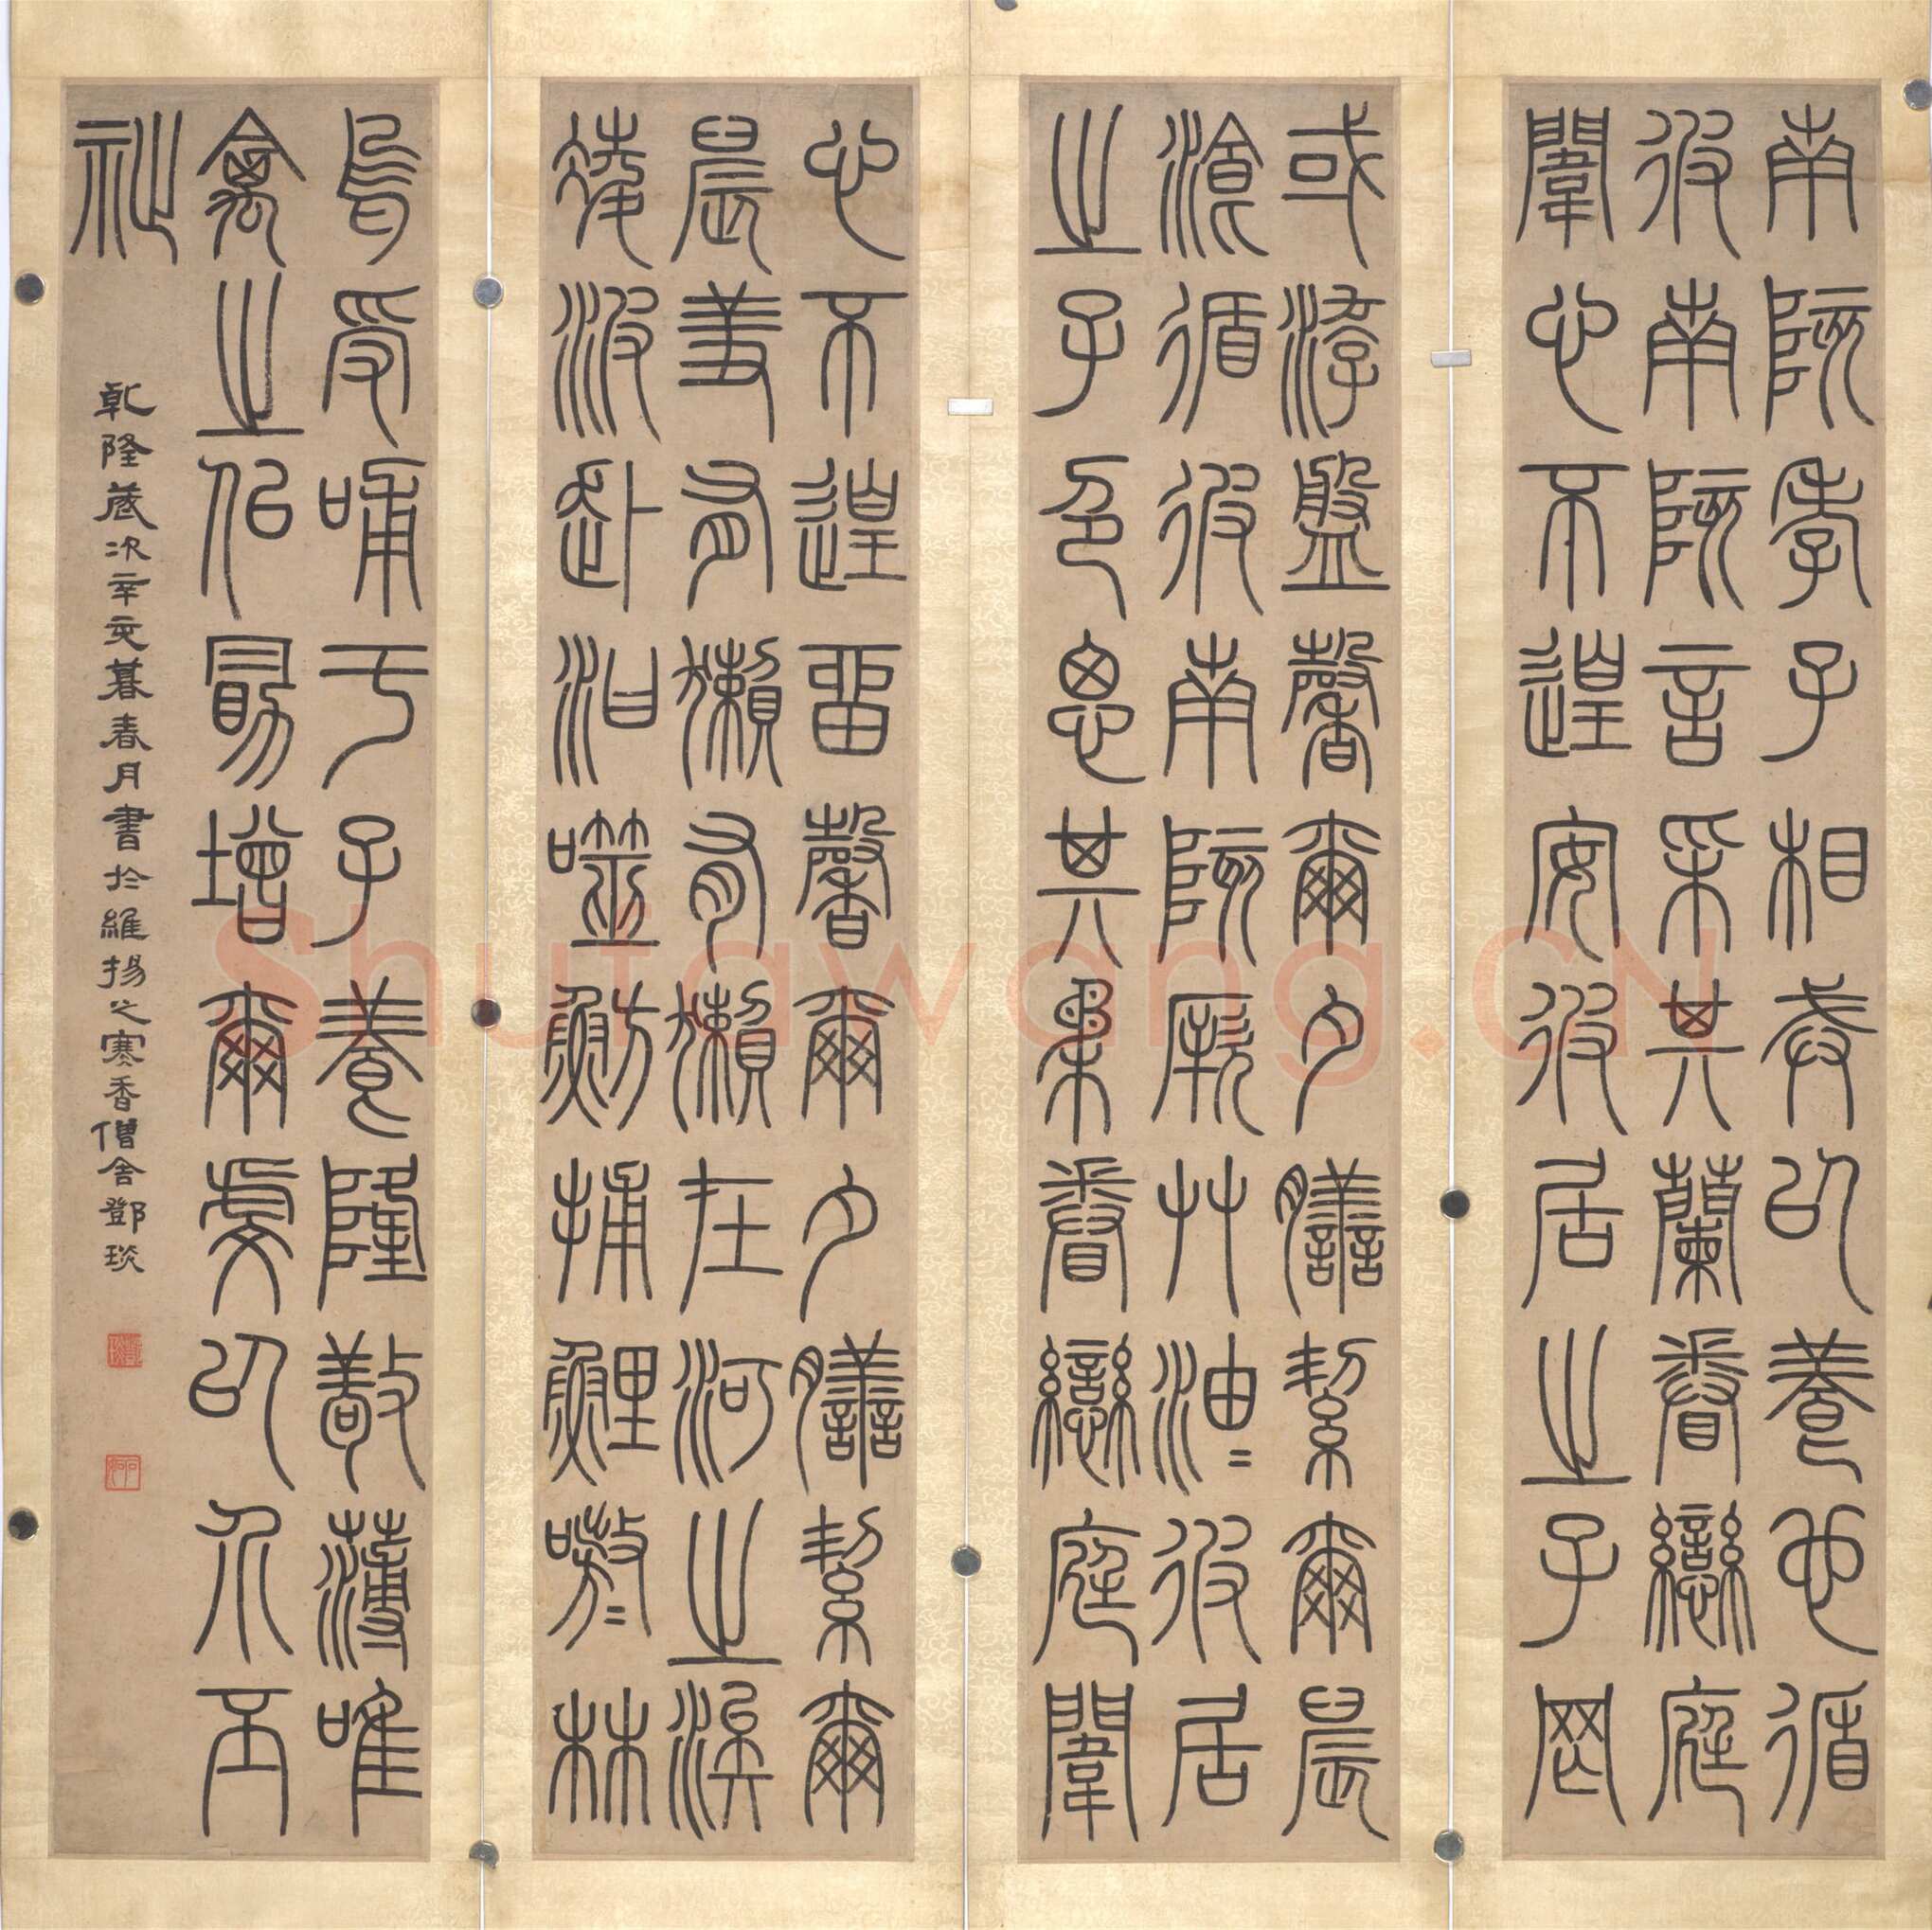 南陔孝子相戒以養也循
彼南陔言采其蘭眷戀庭
闈心不遑安彼居之子罔
或游盤馨爾夕膳絜爾晨
飡循彼南陔厥艸油油彼居
之子色思其柔眷戀庭闈
心不遑留馨爾夕膳絜爾
晨羞有獺有獺在河之涘
凌波赴汨噬魴捕鯉嗷嗷林
烏受哺于子養隆敬薄唯
禽之似勖增爾虔以介丕
祉
乾隆歲次辛亥暮春月書於維揚之寒香僧舍鄧琰
Shufawang.CN